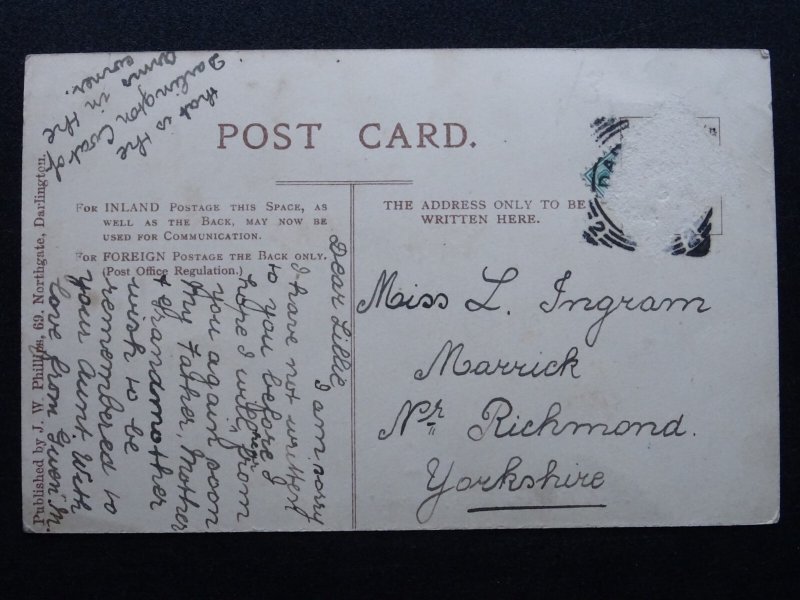 that is the
Darlington Coat of
arms in the
corner.
POST CARD.
FOR INLAND POSTAGE THIS SPACE, AS
WELL AS THE BACK, MAY NOW BE
USED FOR COMMUNICATION.
FOR FOREIGN POSTAGE THE BACK ONLY.
(Post Office Regulation.)
THE ADDRESS ONLY TO BE
WRITTEN HERE.
Dear Lillie
I am sorry
I have not written
to you before, I
hope I will hear from
you again soon
My Father, Mother
& Grandmother
wish to be
remembered to
your Aunt. With
love from Gwen M.
Miss L. Ingram
Marrick
Nr Richmond.
Yorkshire
Published by J. W. Phillips, 69, Northgate, Darlington.